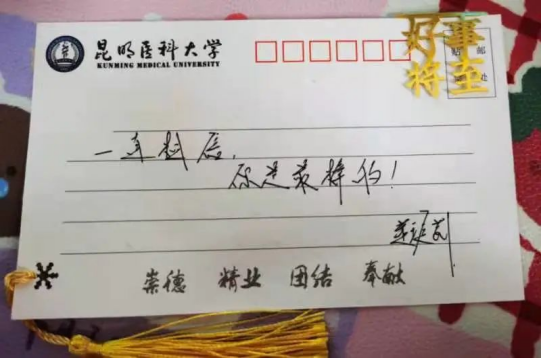 昆明医科大学
KUNMING MEDICAL UNIVERSITY
好事
将至
邮
处
一年
你是最棒的！
崇德 精业 团结 奉献